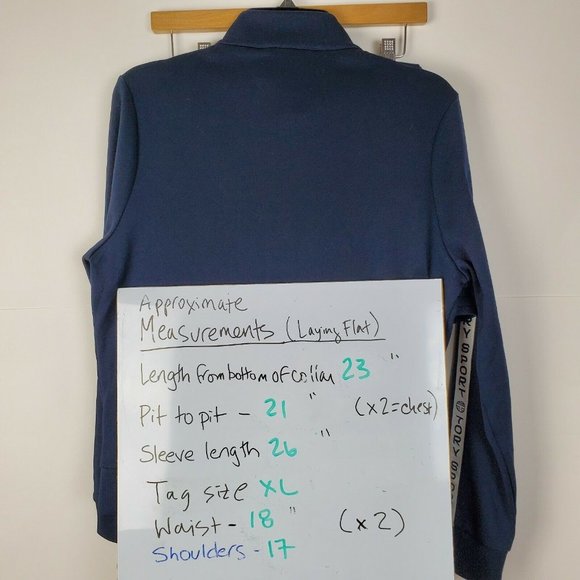 Approximate
Measurements (Laying Flat)
Length from bottom of collar 23 "
Pit to pit - 21 " (x2=chest)
Sleeve length 26 "
Tag size XL
Waist - 18 " (x2)
Shoulders - 17
RY SPORT TORY SPO